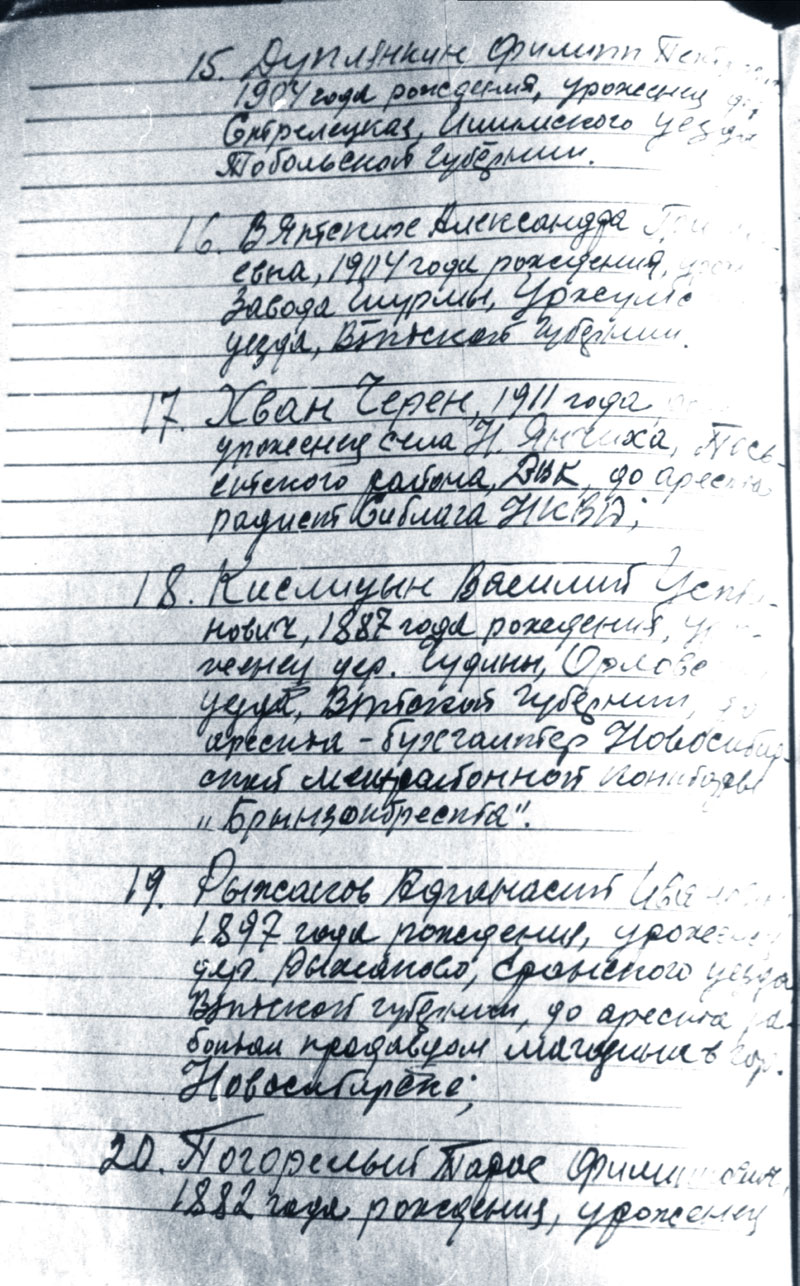 15. Дуплянкин Филипп
1904 года рождения, уроженец дер.
Стрелецкая, Ишимского уезда
Тобольской губернии.
16. Вятских Александра
евна, 1904 года рождения,
Завода Шурмы, Уржумс
уезда, Вятской губернии.
17. Хван Черен, 1911 года
уроженец села Н. Янчиха, Пось-
етского района, ДВК, до ареста
радист Сиблага НКВД;
18. Кислицын Василий Усти-
нович, 1887 года рождения, уро-
женец дер. Гудины, Орловс
уезда, Вятской губернии, до
ареста - бухгалтер Новосибир-
ской межрайонной конторы
19. Рыжаков Афанасий Иванович
1897 года рождения, уроженец
дер Рыжаково, Яранского уезда
Вятской губернии, до ареста ра-
ботал продавцом магазина в гор.
Новосибирске;
20. Погорелый Тарас Филиппович,
1882 года рождения, уроженец